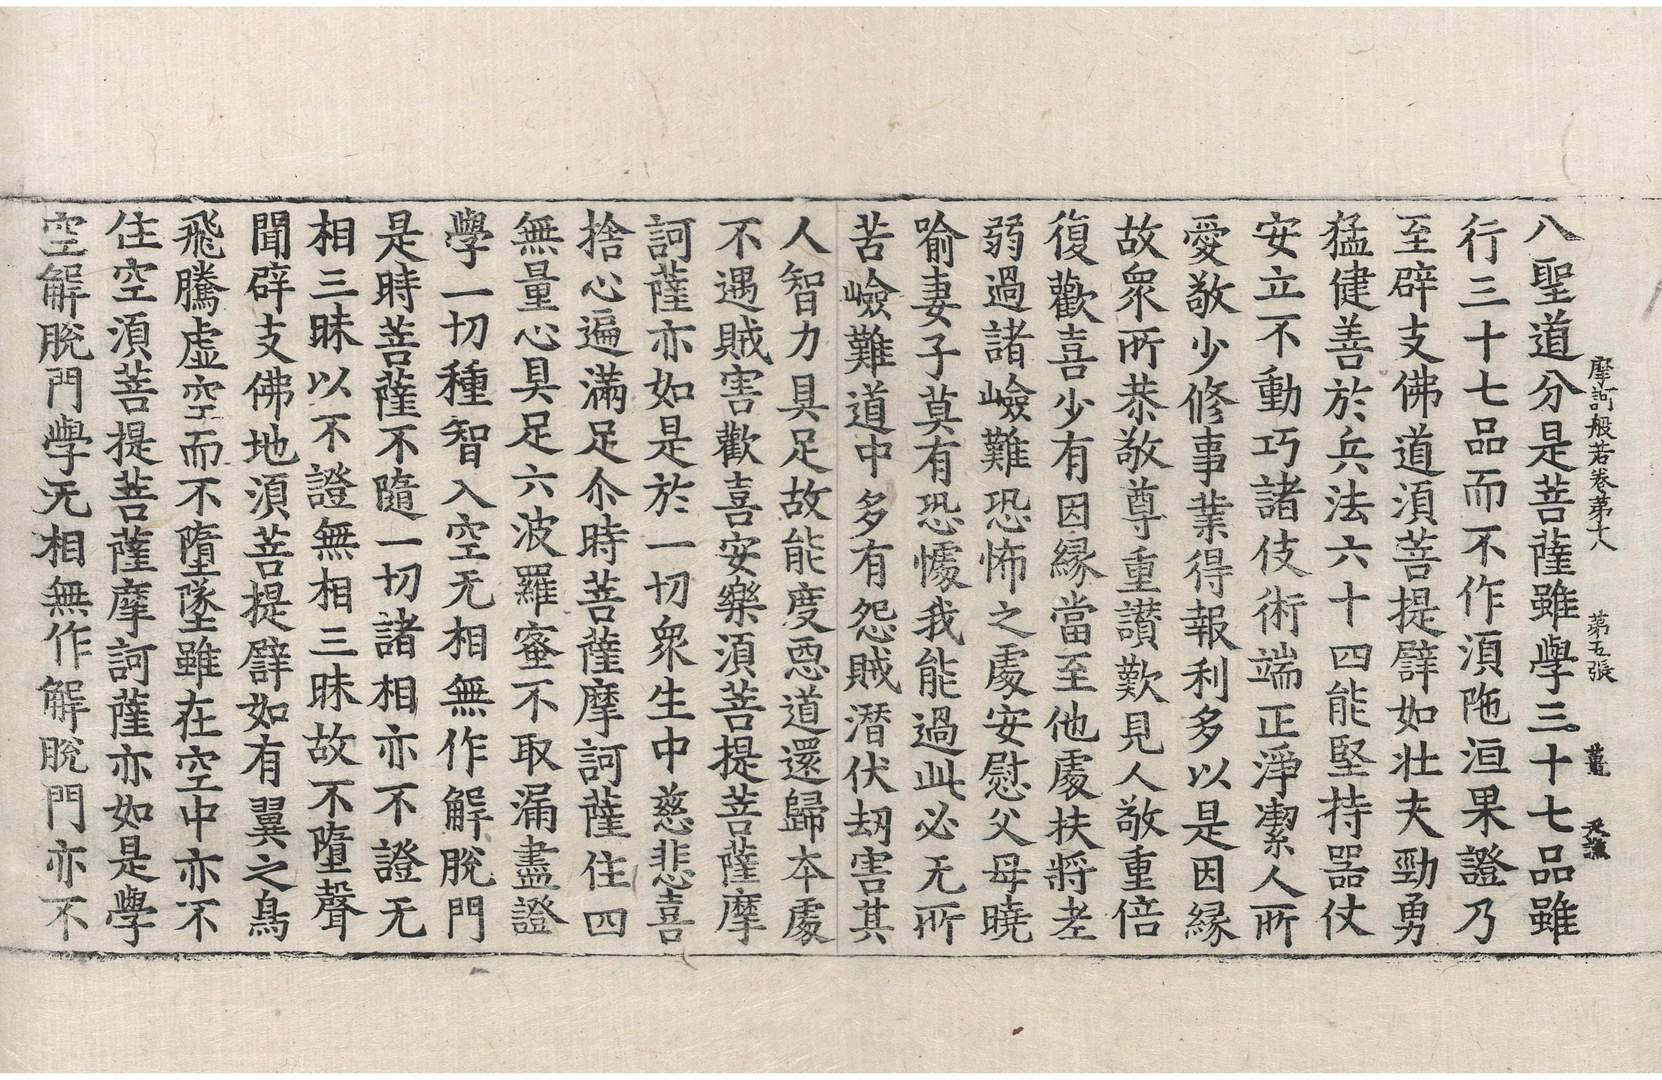 摩訶般若卷第十八　第五張　薑
八聖道分是菩薩雖學三十七品雖
行三十七品而不作湏陁洹果證乃
至辟支佛道湏菩提譬如壮夫勁勇
猛健善於兵法六十四能堅持器仗
安立不動巧諸伎術端正淨潔人所
愛敬少修事業得報利多以是因縁
故衆所恭敬尊重讃歎見人敬重倍
復歡喜少有因縁當至他處扶將老
弱過諸嶮難恐怖之處安慰父母曉
喻妻子莫有恐懅我能過此必无所
苦嶮難道中多有怨賊潛伏刼害其
人智力具足故能度惡道還歸本處
不遇賊害歡喜安樂湏菩提菩薩摩
訶薩亦如是於一切衆生中慈悲喜
捨心遍滿足尒時菩薩摩訶薩住四
無量心具足六波羅蜜不取漏盡證
學一切種智入空无相無作解脫門
是時菩薩不隨一切諸相亦不證无
相三昧以不證無相三昧故不墮聲
聞辟支佛地湏菩提譬如有翼之鳥
飛騰虛空而不墮墜雖在空中亦不
住空湏菩提菩薩摩訶薩亦如是學
空解脫門學无相無作解脫門亦不